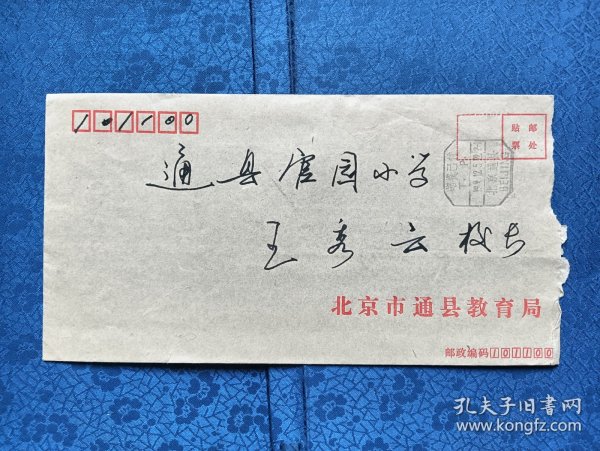 101100
贴邮
票处
通县官园小学
王秀云校长
北京市通县教育局
邮政编码101100
孔夫子旧书网
www.kongfz.com